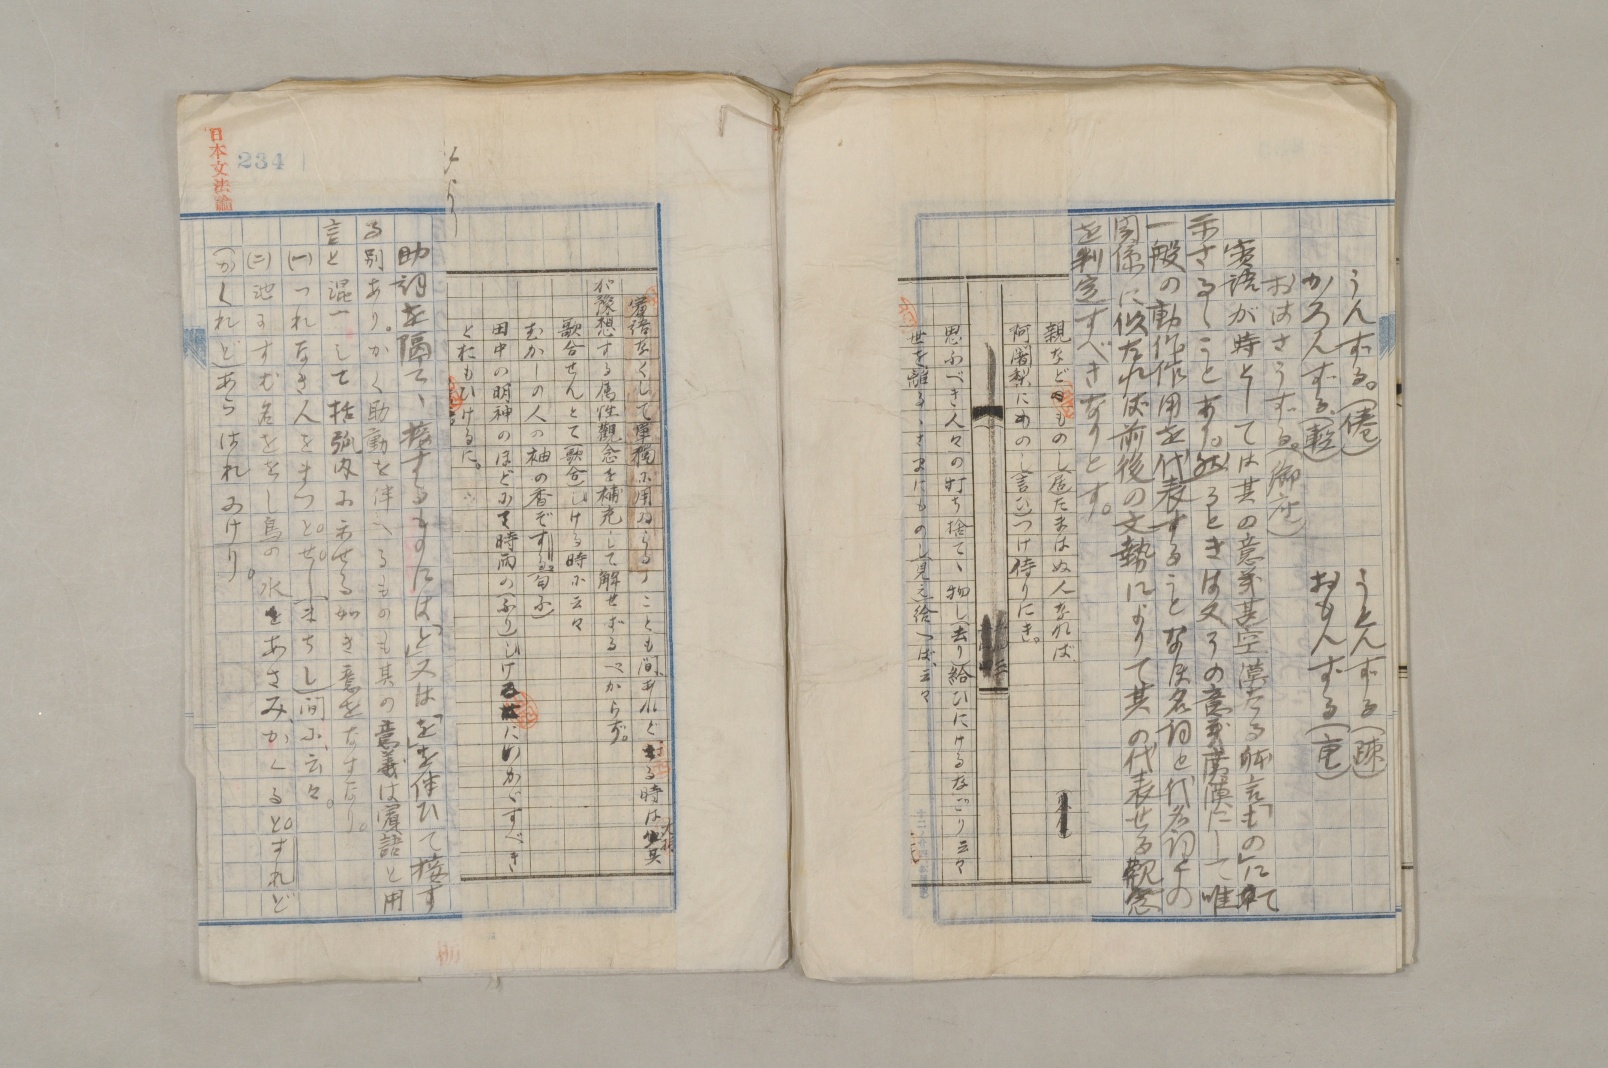 うんずる。(倦)
うとんずる(疎)
かろんずる、(軽)
おもんずる(重)
おはさうずる。(御座)
賓語が時としては其の意義甚空漠たる体言「もの」にて
示さるゝことあり。然るときは又その意義廣漠にして唯
一般の動作作用を代表することなほ名詞と代名詞との
関係に似たれば前後の文勢によりて其の代表せる観念
を判定すべきなりとす。
親などものし居たまはぬ人なれば
阿闍梨にものし言ひつけ侍りにき。
思ふべき人々の打ち捨てゝ物し(去り)給ひにけるなごり云々
世を離るゝさまにものし見え給へば、云々
日本文法論
234
賓語なくして単獨に用ゐらるゝことも間々あれどさる時は其
が豫想する属性観念を補充して解せざるべからず。
歌合せんとて(歌合)しける時に云々
むかしの人の袖の香ぞする(匂ふ)
田中の明神のほどにて時雨の(ふり)しけるにいかがすべき
とたもひけるに。
助詞を隔てゝ接するものには「と」又は「を」を伴ひて接す
る別あり。かく助動を伴へるものも其の意義は賓語と用
言と混一して括弧内に示せる如き意をなすなり。
(一)つれなき人をまつとせし(まちし)間に、云々。
(二)池にすむ名ををし鳥の水をあさみかくるとすれど
(かくれど)あらはれにけり。